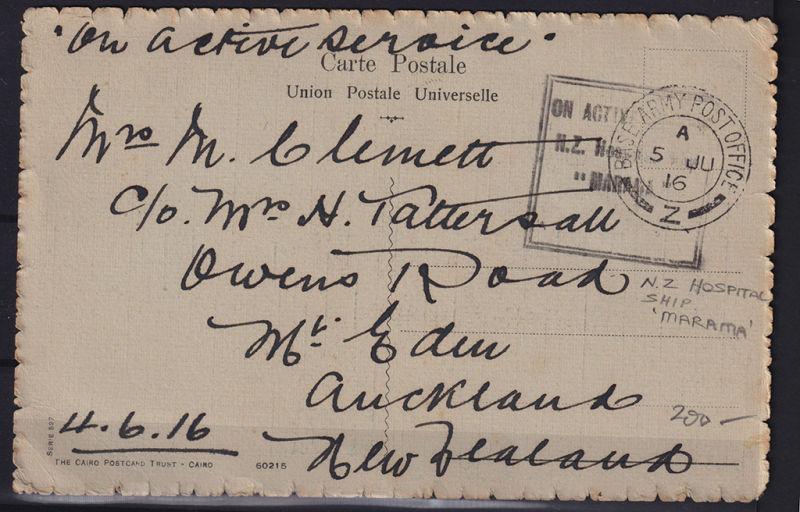 "On active service"
Carte Postale
Union Postale Universelle
ON ACTIVE
N.Z. Hospital
"MARAMA"
BASE ARMY POST OFFICE
A
5 JU
16
Z
Mrs M. Clemett
c/o. Mrs H. Tattersall
Owens Road
Mt. Eden
Auckland
New Zealand
N.Z HOSPITAL
SHIP
'MARAMA'
200-
4.6.16
SERIE 527
THE CAIRO POSTCARD TRUST - CAIRO
60215